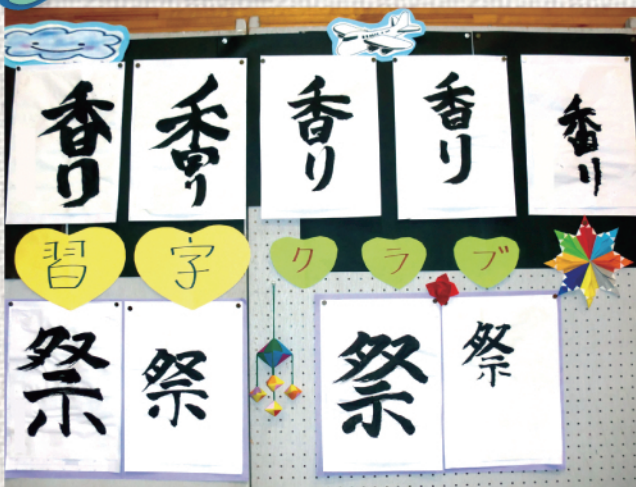 香り 香り 香り 香り 香り
習字クラブ
祭 祭 祭 祭